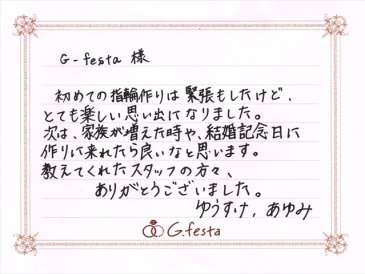 G-festa 様
初めての指輪作りは緊張もしたけど、
とても楽しい思い出になりました。
次は、家族が増えた時や、結婚記念日に
作りに来れたら良いなと思います。
教えてくれたスタッフの方々、
ありがとうございました。
ゆうすけ, あゆみ
G.festa